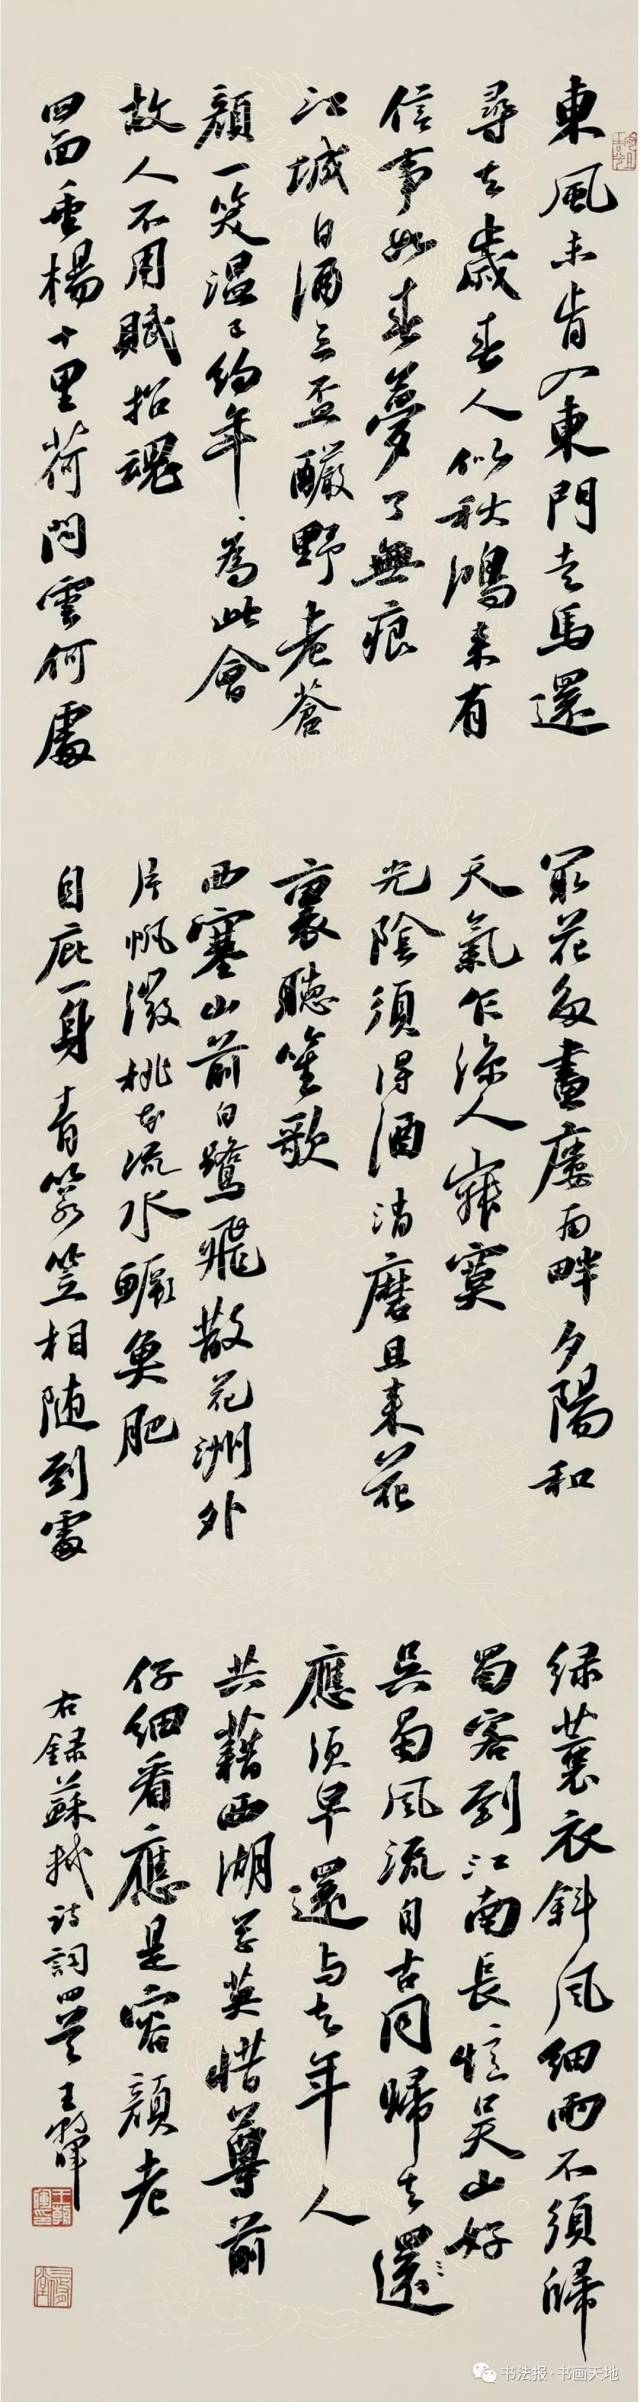 東風未肯入東門走馬還
尋去歲春人似秋鴻來有
信事如春夢了無痕
江城白酒三盃釅野老蒼
顏一笑溫已約年〻為此會
故人不用賦招魂
四面垂楊十里荷問雲何處
最花多畫樓南畔夕陽和
天氣乍涼人寂寞
光陰須得酒消磨且來花
裏聽笙歌
西塞山前白鷺飛散花洲外
片帆微桃花流水鱖魚肥
自庇一身青箬笠相隨到處
綠蓑衣斜風細雨不須歸
蜀客到江南長憶吳山好
吳蜀風流自古同歸去還
應須早還与去年人
共藉西湖草莫惜尊前
仔細看應是容顏老
右録蘇軾詩詞四首 王
书法报·书画天地